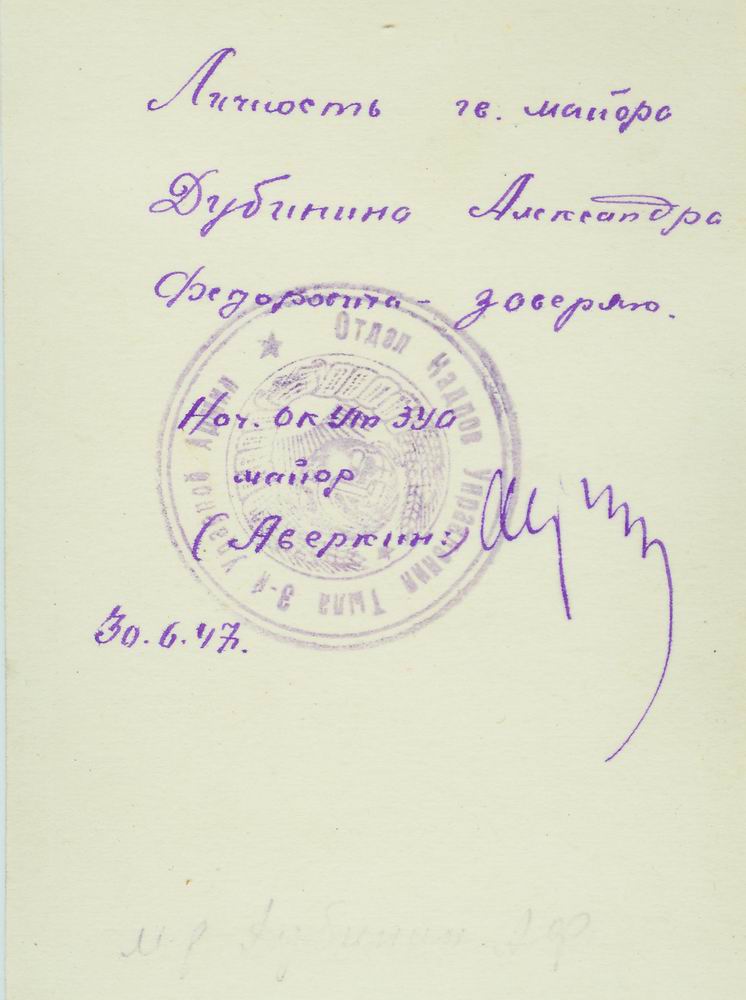 Личность гв. майора
Дубинина Александра
Федоровича - заверяю.
Нач. ОК УТ 3УА
майор
(Аверкин:)
30.6.47.
Отдел Кадров Управления Тыла 3-й Ударной Армии
м-р Дубинин АФ